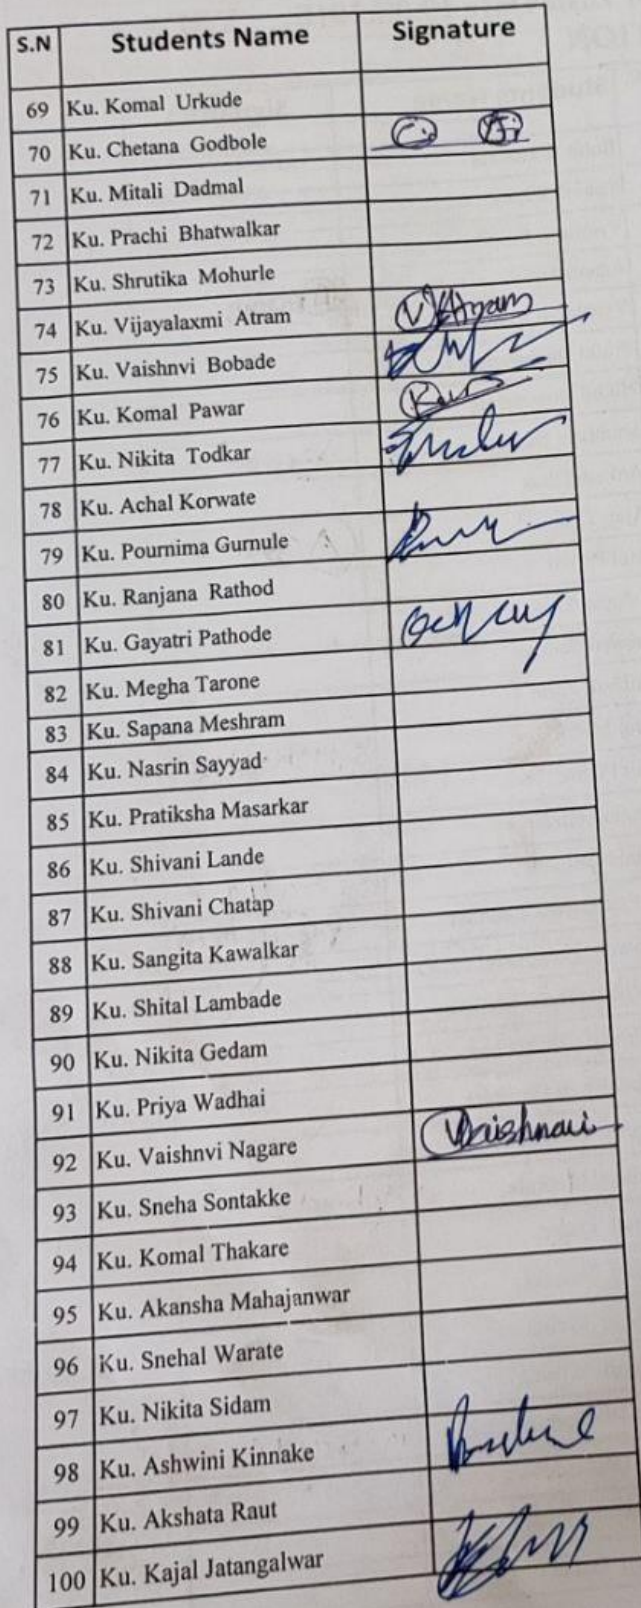 S.N Students Name Signature
69 Ku. Komal Urkude
70 Ku. Chetana Godbole
71 Ku. Mitali Dadmal
72 Ku. Prachi Bhatwalkar
73 Ku. Shrutika Mohurle
74 Ku. Vijayalaxmi Atram VAtram
75 Ku. Vaishnvi Bobade
76 Ku. Komal Pawar
77 Ku. Nikita Todkar
78 Ku. Achal Korwate
79 Ku. Pournima Gurnule
80 Ku. Ranjana Rathod
81 Ku. Gayatri Pathode
82 Ku. Megha Tarone
83 Ku. Sapana Meshram
84 Ku. Nasrin Sayyad
85 Ku. Pratiksha Masarkar
86 Ku. Shivani Lande
87 Ku. Shivani Chatap
88 Ku. Sangita Kawalkar
89 Ku. Shital Lambade
90 Ku. Nikita Gedam
91 Ku. Priya Wadhai
92 Ku. Vaishnvi Nagare Vaishnavi
93 Ku. Sneha Sontakke
94 Ku. Komal Thakare
95 Ku. Akansha Mahajanwar
96 Ku. Snehal Warate
97 Ku. Nikita Sidam
98 Ku. Ashwini Kinnake
99 Ku. Akshata Raut
100 Ku. Kajal Jatangalwar